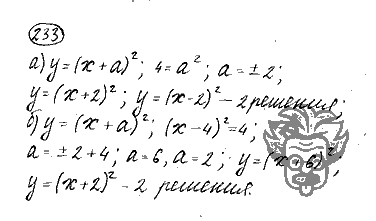 233
а) y = (x + a)²; 4 = a²; a = ± 2;
y = (x+2)²; y = (x-2)² – 2 решения;
б) y = (x + a)²; (x – 4)² = 4;
a = ± 2 + 4; a = 6, a = 2; y = (x + 6)²;
y = (x+2)² – 2 решения.